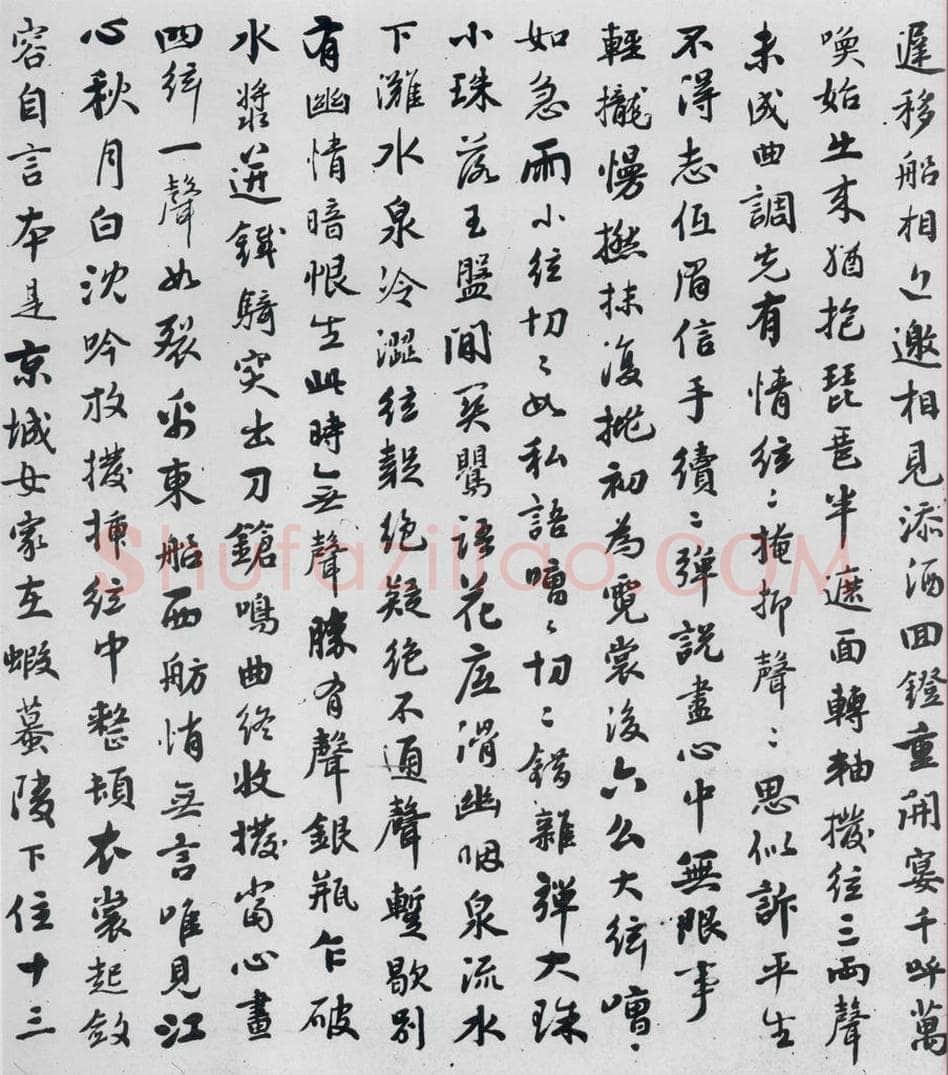 遲移船相近邀相見添酒回鐙重開宴千呼萬
喚始出來猶抱琵琶半遮面轉軸撥絃三兩聲
未成曲調先有情絃〻掩抑聲〻思似訴平生
不得志低眉信手續〻彈說盡心中無限事
輕攏慢撚抹復挑初為霓裳後六么大絃嘈〻
如急雨小絃切〻如私語嘈〻切〻錯雜彈大珠
小珠落玉盤間關鶯語花底滑幽咽泉流水
下灘水泉冷澀絃疑絕疑絕不通聲暫歇別
有幽情暗恨生此時無聲勝有聲銀瓶乍破
水漿迸鐵騎突出刀鎗鳴曲終收撥當心畫
四絃一聲如裂帛東船西舫悄無言唯見江
心秋月白沈吟放撥插絃中整頓衣裳起斂
容自言本是京城女家在蝦蟇陵下住十三
Shufaziliao.COM